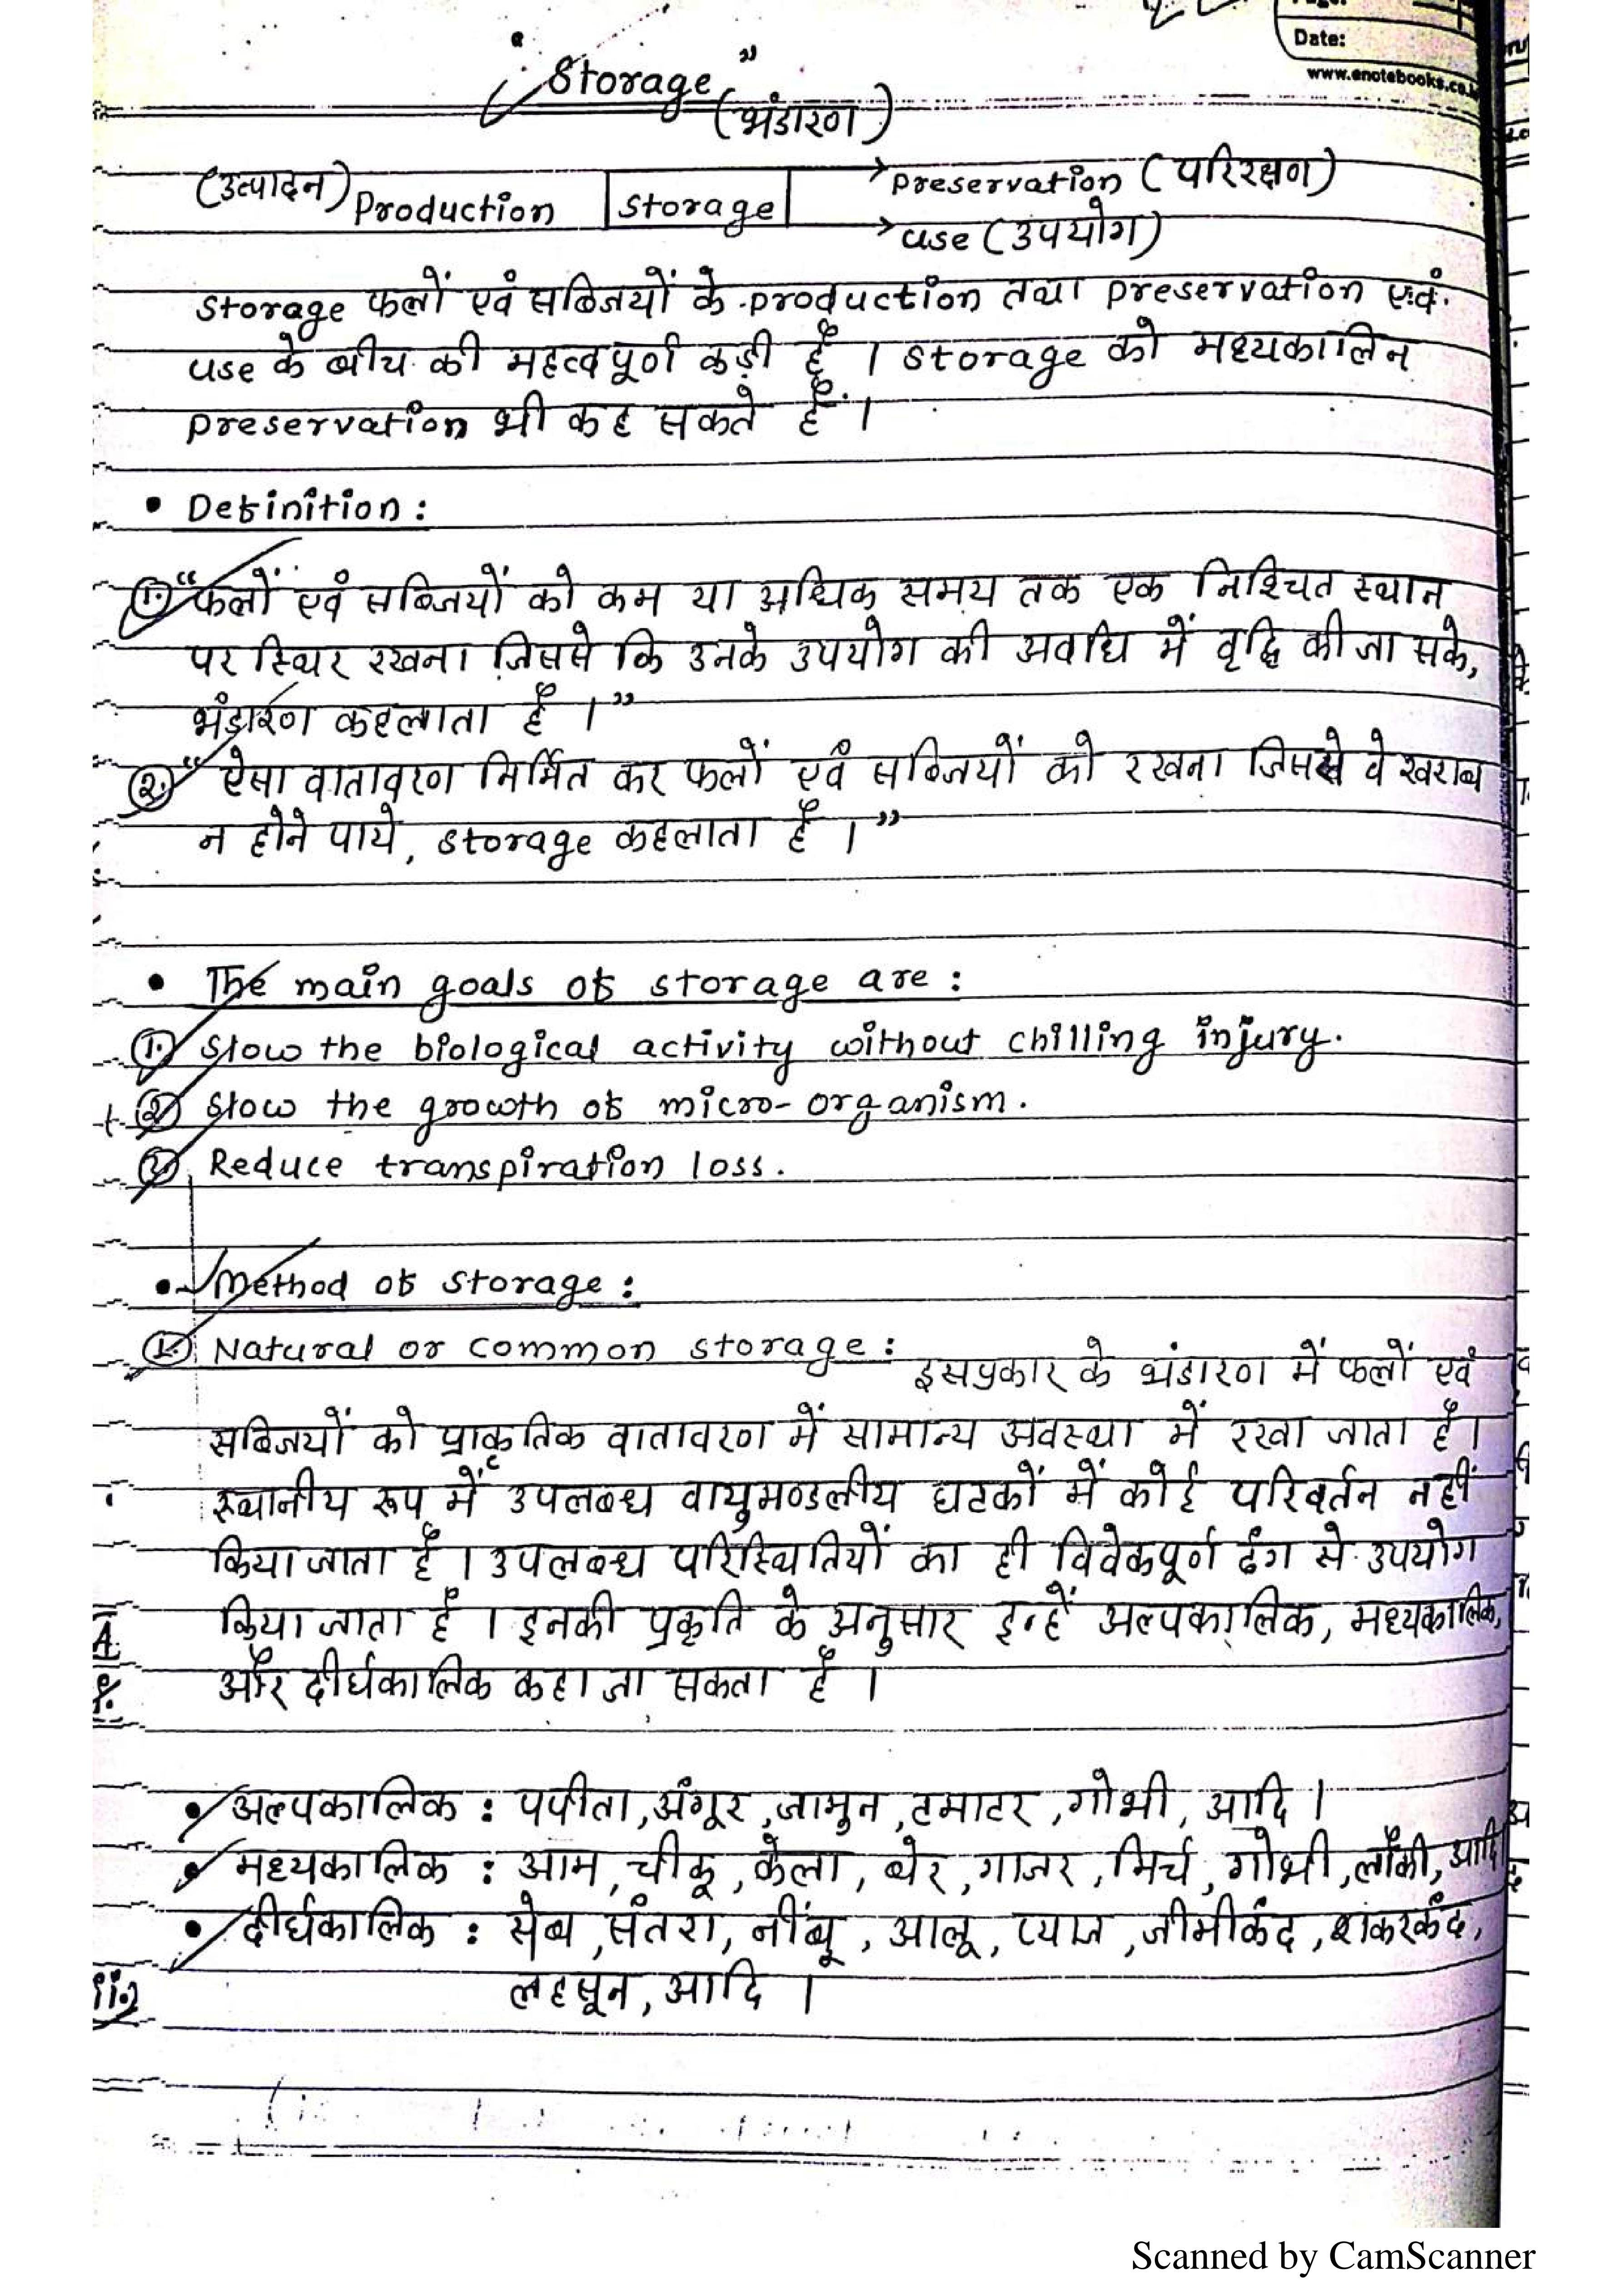 Date:
www.enotebooks.co
"Storage"
(भंडारण)
(उत्पादन) Production Storage → Preservation (परिरक्षण)
→ use (उपयोग)
Storage फलों एवं सब्जियों के production तथा preservation एवं
use के बीच की महत्वपूर्ण कड़ी है । Storage को मध्यकालिन
preservation भी कह सकते हैं ।
• Definition :
1. "फलों एवं सब्जियों को कम या अधिक समय तक एक निश्चित स्थान
पर स्थिर रखना जिससे कि उनके उपयोग की अवधि में वृद्धि की जा सके,
भंडारण कहलाता है ।"
2. "ऐसा वातावरण निर्मित कर फलों एवं सब्जियों को रखना जिससे वे खराब
न होने पाये, storage कहलाता है ।"
• The main goals of storage are :
1. Slow the biological activity without chilling injury.
2. Slow the growth of micro-organism.
3. Reduce transpiration loss.
• Method of storage :
1. Natural or common storage : इस प्रकार के भंडारण में फलों एवं
सब्जियों को प्राकृतिक वातावरण में सामान्य अवस्था में रखा जाता है ।
स्थानीय रूप में उपलब्ध वायुमण्डलीय घटकों में कोई परिवर्तन नहीं
किया जाता है । उपलब्ध परिस्थितियों का ही विवेकपूर्ण ढंग से उपयोग
किया जाता है । इनकी प्रकृति के अनुसार इन्हें अल्पकालिक, मध्यकालिक,
और दीर्घकालिक कहा जा सकता है ।
• अल्पकालिक : पपीता, अंगूर, जामुन, टमाटर, गोभी, आदि ।
• मध्यकालिक : आम, चीकू, केला, बेर, गाजर, मिर्च, गोभी, लौकी, आदि
• दीर्घकालिक : सेब, संतरा, नींबू, आलू, प्याज, जीमीकंद, शकरकंद,
लहसून, आदि ।
Scanned by CamScanner